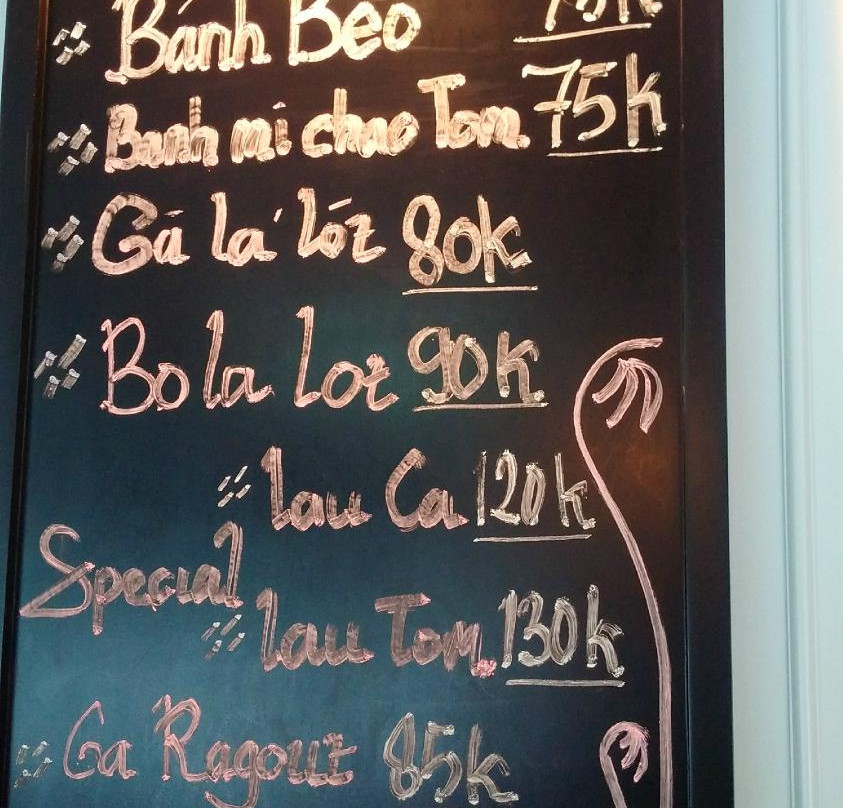 Bánh Beo 75k
Banh mi chao Tom 75k
Gá la' lót 80k
Bo la lot 90k
lau Ca 120k
Special
lau Tom. 130k
Ga Ragout 85k